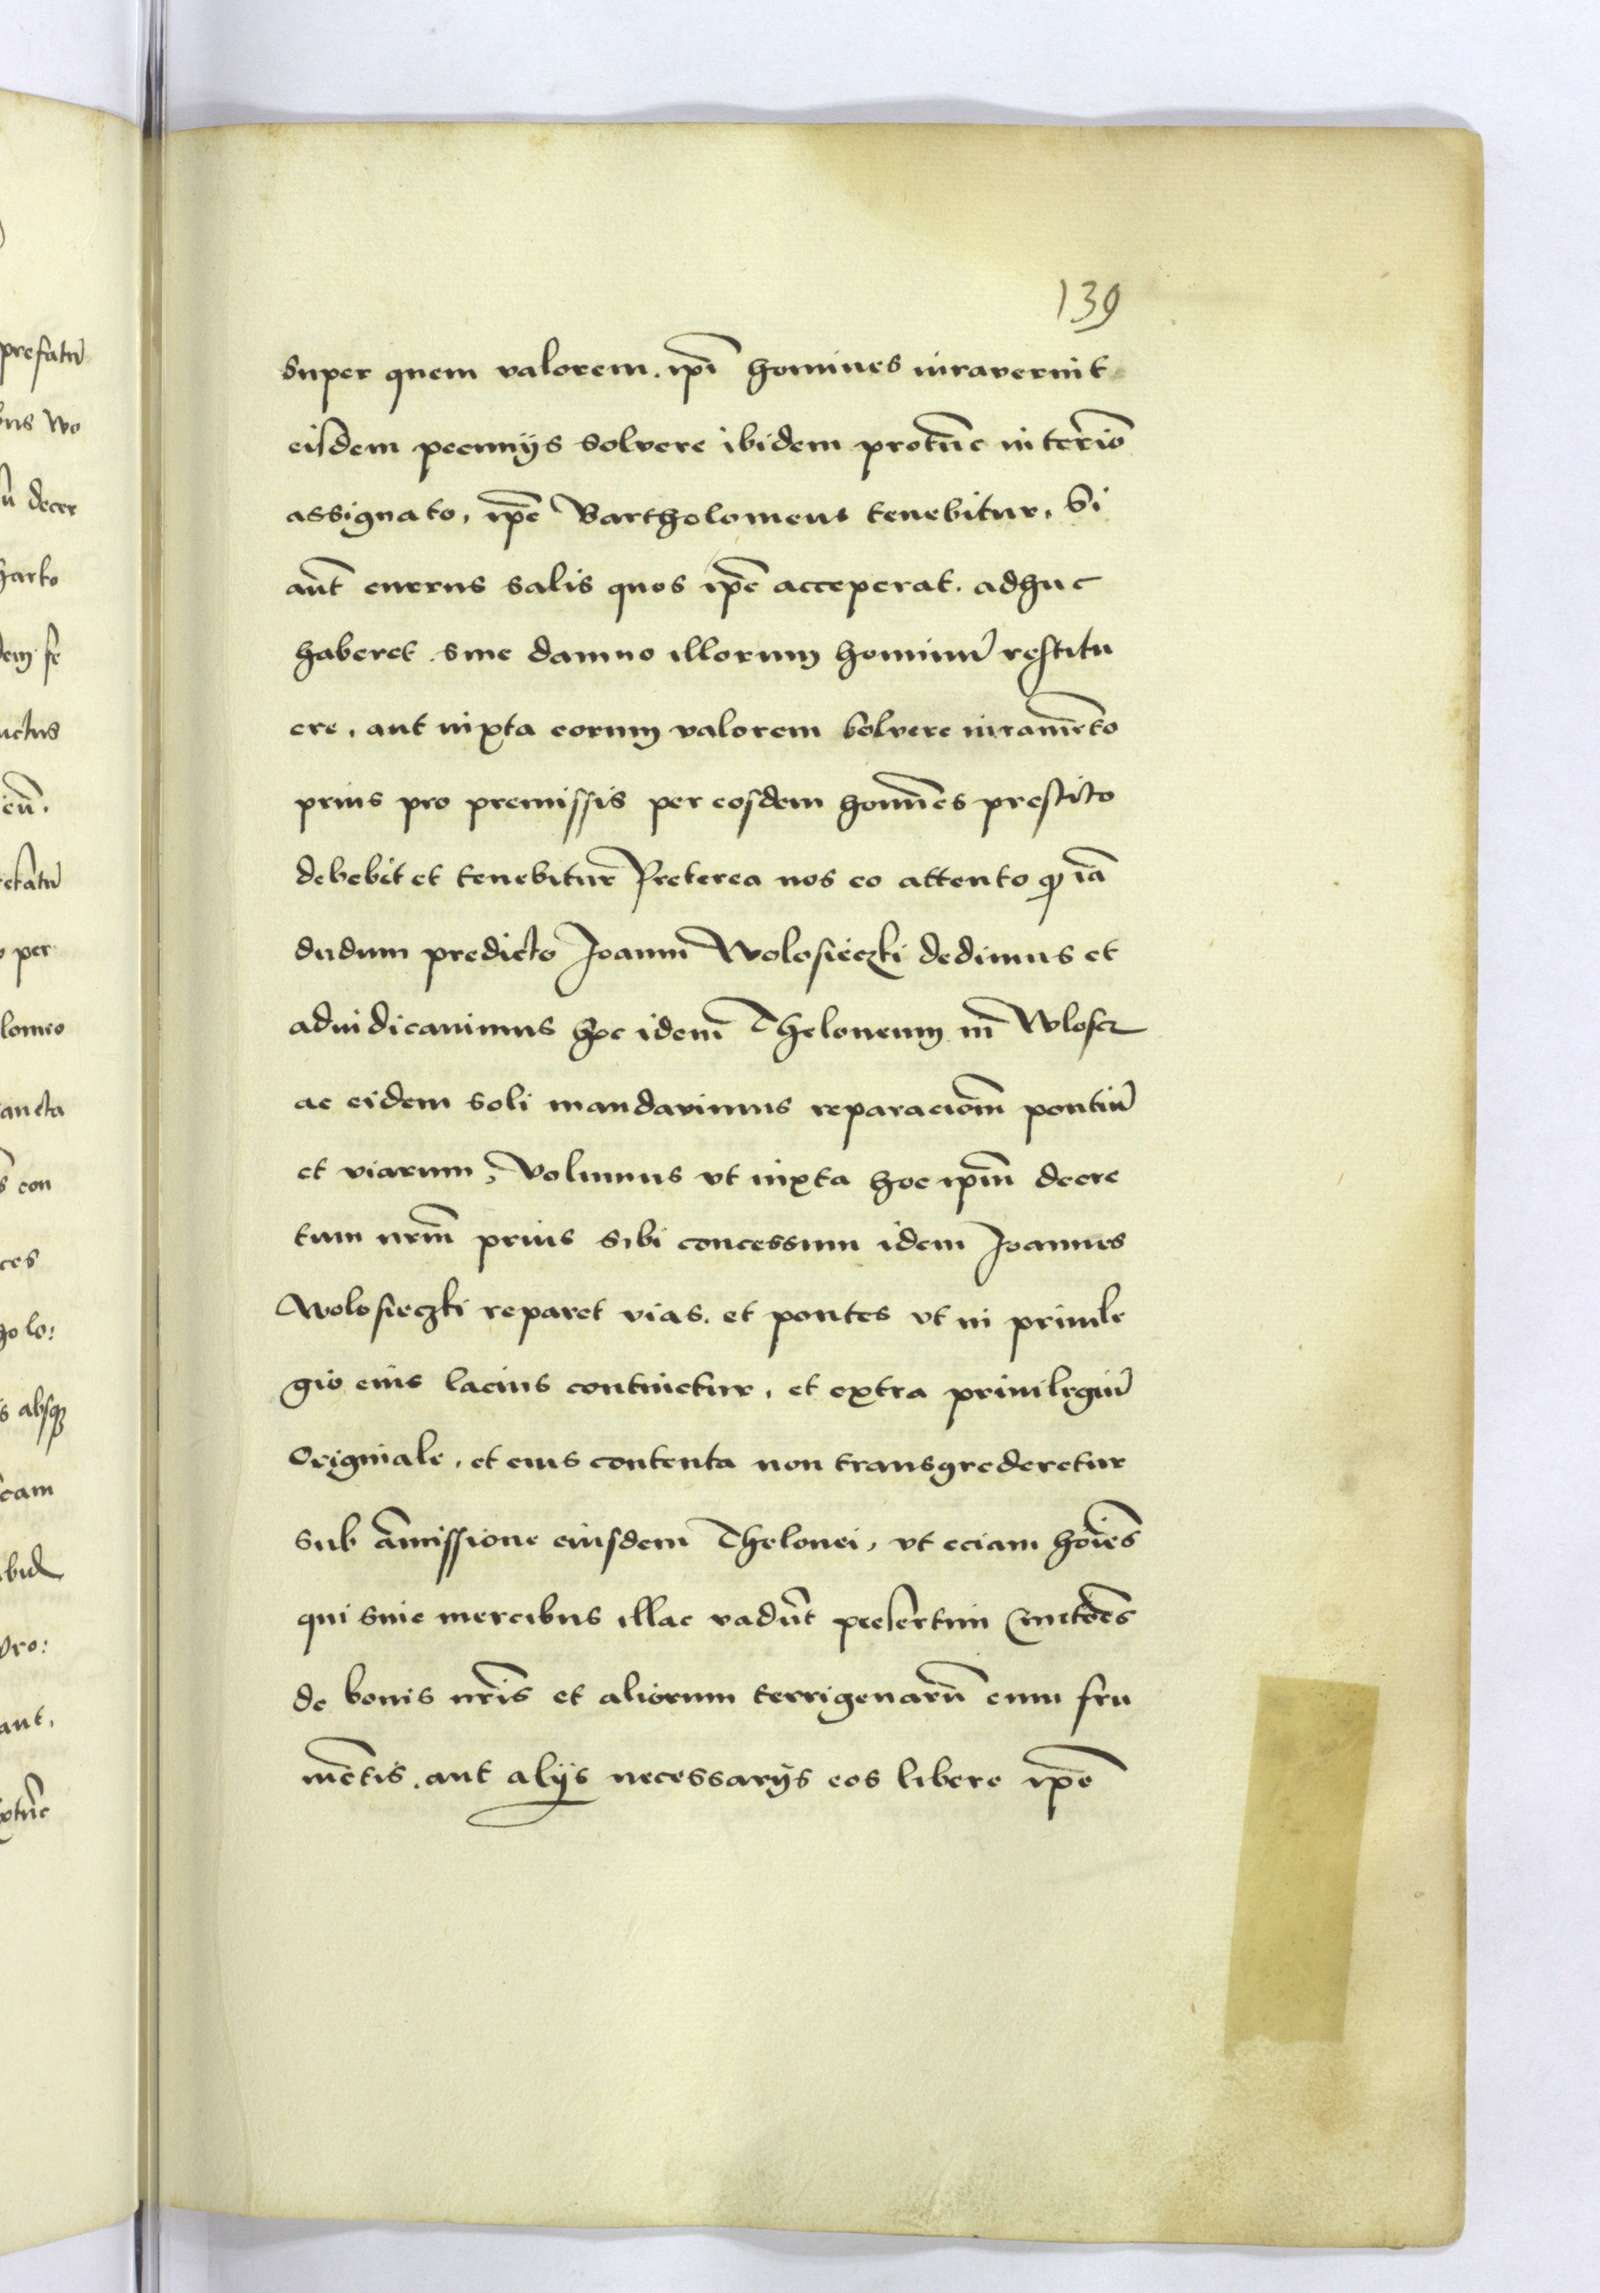 139
super quem valorem. ip̄i homines iuraverint
eisdem pecunijs solvere ibidem protūc in ter̄io
assignato, ip̄e Bartholomeus tenebitur, Si
aūt currus salis quos ip̄e acceperat. adhuc
haberet. sine damno illorum hominū restitu
ere, aut iuxta eorum valorem solvere iuramēto
prius pro premissis per eosdem hoīnes prestito
debebit et tenebitur Preterea nos eo attento qꝫ iā
dudum predicto Joanni Wolosieczki dedimus et
adiudicauimus hoc idem Theloneum in Wlosc
ac eidem soli mandavimus reparaciom̄ pontiū
et viarum, Volumus vt iuxta hoc ip̄m decre
tum nr̄m prius sibi concessum idem Joannes
Wolosieczki reparet vias. et pontes vt in priuile
gio eius lacius continetur, et extra priuilegiū
Originale, et eius contenta non transgrederetur
sub āmissione eiusdem Thelonei, vt eciam hoīes
qui sine mercibus illac vadūt presertim Cmetões
de bonis nr̄is et aliorum terrigenarū cum fru
mētis. aut alijs necessarijs eos libere ip̄e
prefatū
bus Wo
decer
harto
dem se
ictus
per
lomeo
ancta
con
ces
holo:
absqꝫ
cam
ibid
pro:
aut,
extūc